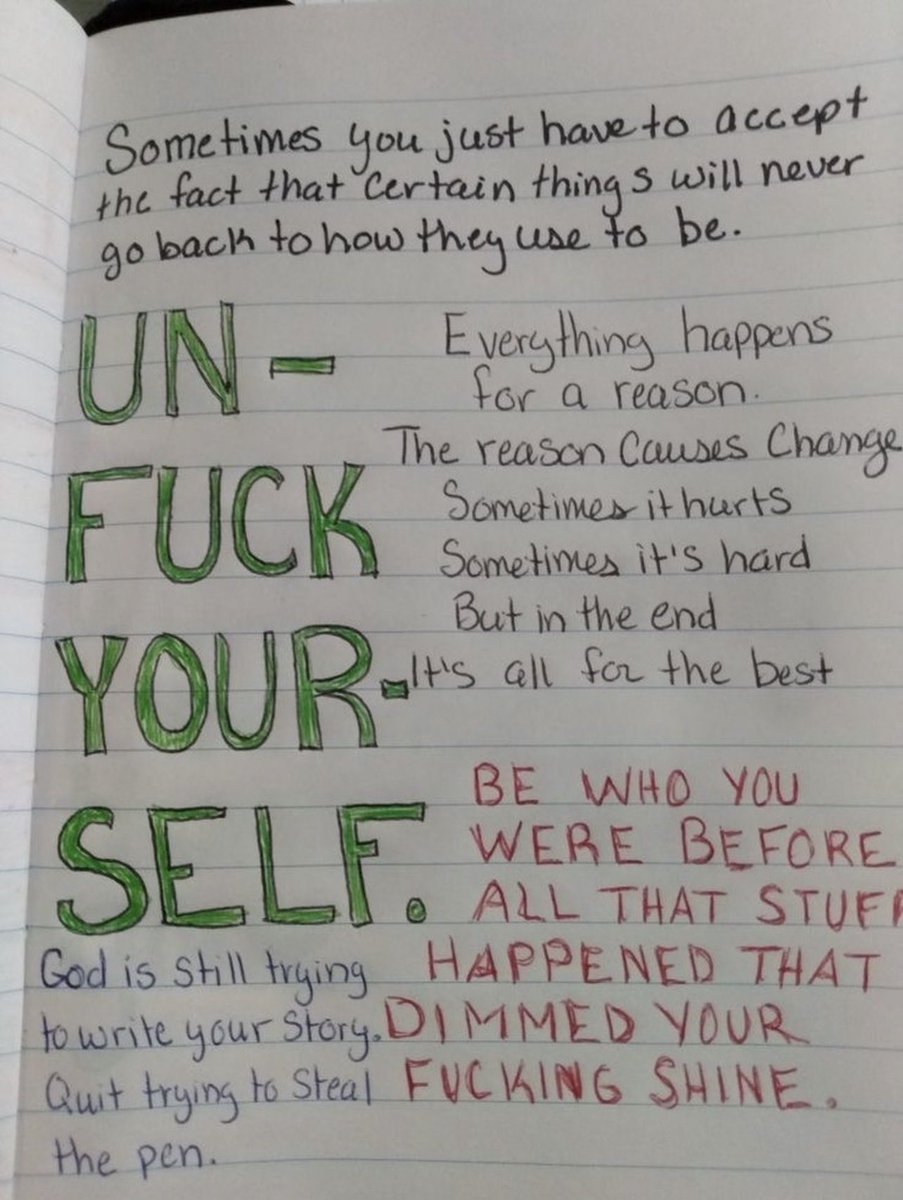 Sometimes you just have to accept
the fact that certain things will never
go back to how they use to be.
UN-
FUCK
YOUR-
SELF.
Everything happens
for a reason.
The reason Causes Change
Sometimes it hurts
Sometimes it's hard
But in the end
It's all for the best
BE WHO YOU
WERE BEFORE
ALL THAT STUFF
HAPPENED THAT
DIMMED YOUR
FUCKING SHINE.
God is still trying
to write your story.
Quit trying to steal
the pen.